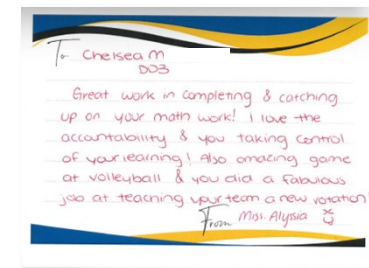 To Chelsea M
D03
Great work in completing & catching
up on your math work! I love the
accountability & you taking control
of your learning! Also amazing game
at volleyball & you did a fabulous
job at teaching your team a new rotation
From Miss. Alyssia